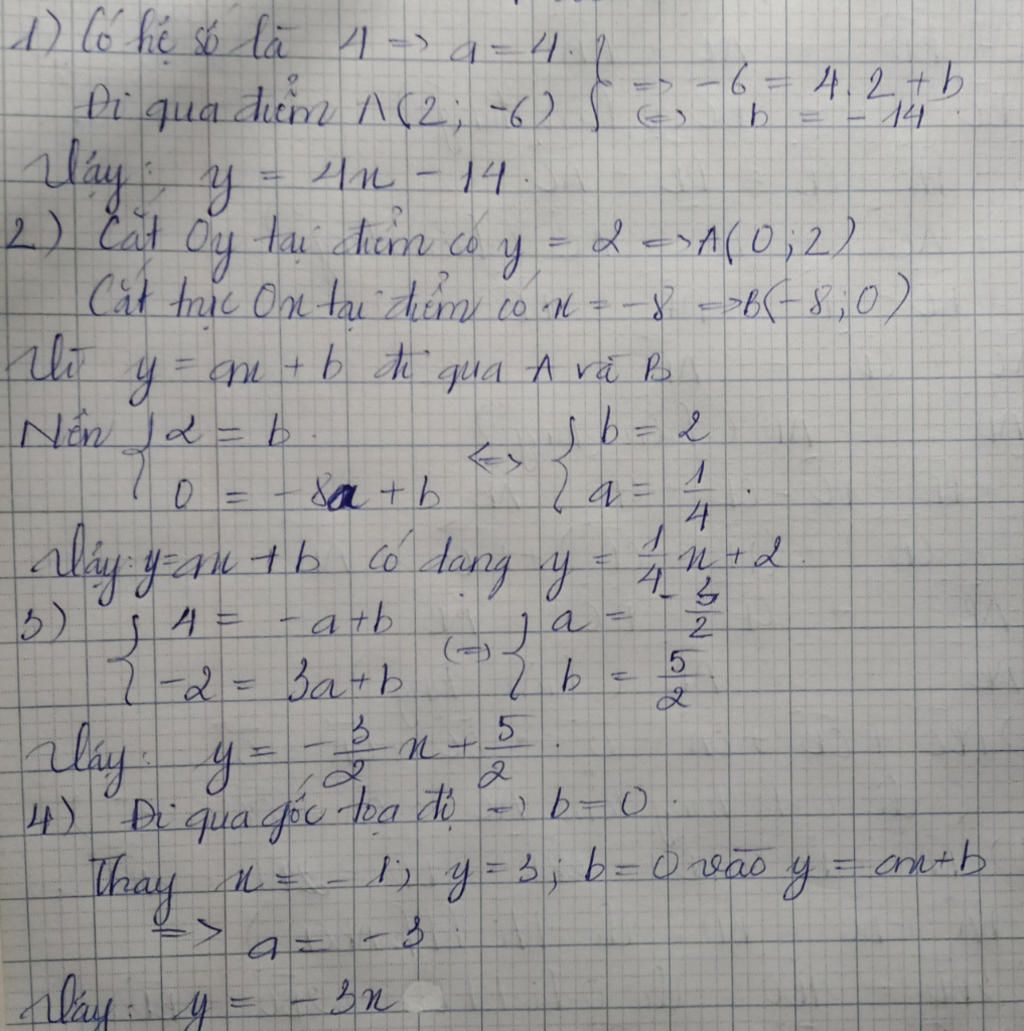 1) Có hệ số là 4 => a = 4.
Đi qua điểm A(2; -6)
} => -6 = 4.2 + b
<=> b = -14.
Vậy: y = 4x - 14.
2) Cắt Oy tại điểm có y = 2 => A(0; 2)
Cắt trục Ox tại điểm có x = -8 => B(-8; 0)
Vì y = ax + b đi qua A và B
Nên { 2 = b. <=> { b = 2
0 = -8a + b a = 1/4.
Vậy: y = ax + b có dạng y = 1/4 x + 2.
3) { 4 = -a + b <=> { a = -3/2
-2 = 3a + b b = 5/2.
Vậy: y = -3/2 x + 5/2.
4) Đi qua gốc tọa độ => b = 0.
Thay x = -1; y = 3; b = 0 vào y = ax + b
=> a = -3.
Vậy: y = -3x